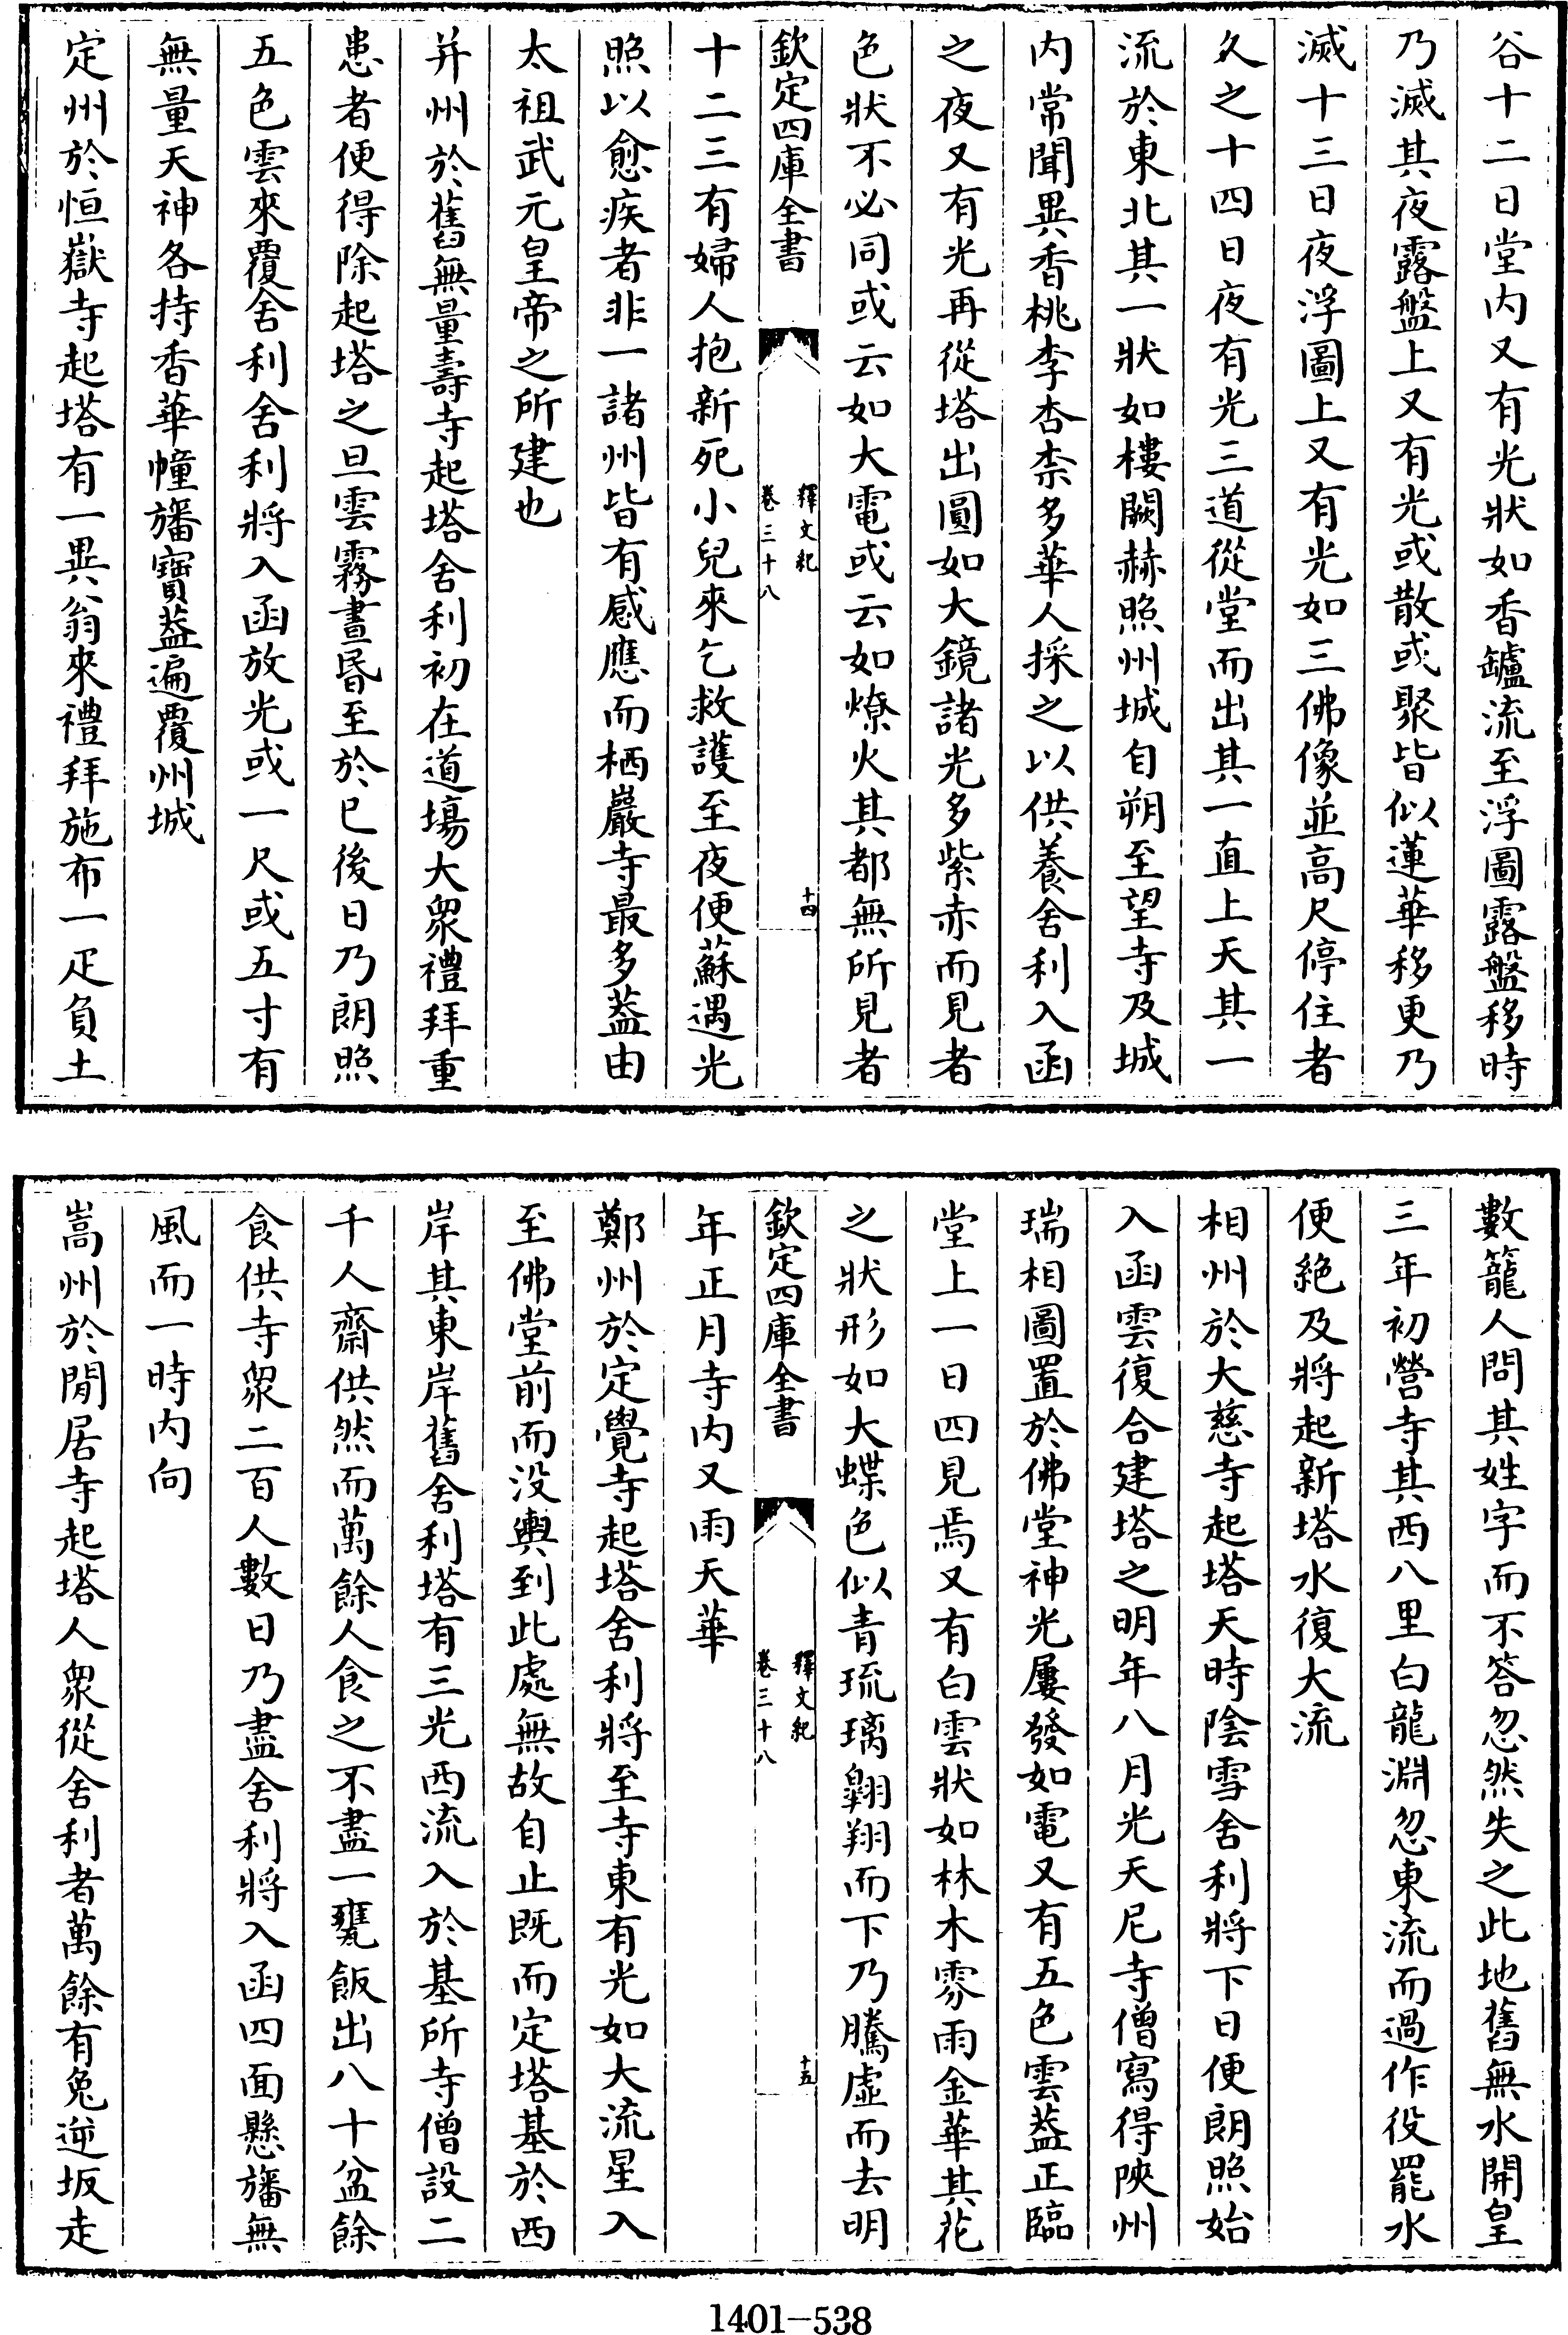 谷十二日堂内又有光狀如香鑪流至浮圖露盤移時
乃滅其夜露盤上又有光或散或聚皆似蓮華移更乃
滅十三日夜浮圖上又有光如三佛像並高尺停住者
久之十四日夜有光三道從堂而出其一直上天其一
流於東北其一狀如樓闕赫照州城自朔至望寺及城
内常聞異香桃李杏柰多華人採之以供養舍利入函
之夜又有光再從塔出圓如大鏡諸光多紫赤而見者
色狀不必同或云如大電或云如燎火其都無所見者
欽定四庫全書
釋文紀
卷三十八
十四
十二三有婦人抱新死小兒來乞救護至夜便蘇遇光
照以愈疾者非一諸州皆有感應而栖巖寺最多葢由
太祖武元皇帝之所建也
并州於舊無量壽寺起塔舍利初在道場大衆禮拜重
患者便得除起塔之旦雲霧晝昏至於已後日乃朗照
五色雲來覆舍利舍利將入函放光或一尺或五寸有
無量天神各持香華幢旛寶葢遍覆州城
定州於恒嶽寺起塔有一異翁來禮拜施布一疋負土
數籠人問其姓字而不答忽然失之此地舊無水開皇
三年初營寺其西八里白龍淵忽東流而過作役罷水
便絶及將起新塔水復大流
相州於大慈寺起塔天時陰雪舍利將下日便朗照始
入函雲復合建塔之明年八月光天尼寺僧寫得陝州
瑞相圖置於佛堂神光屢發如電又有五色雲葢正臨
堂上一日四見焉又有白雲狀如林木雰雨金華其花
之狀形如大蝶色似青琉璃翺翔而下乃騰虛而去明
欽定四庫全書
釋文紀
卷三十八
十五
年正月寺内又雨天華
鄭州於定覺寺起塔舍利將至寺東有光如大流星入
至佛堂前而没輿到此處無故自止既而定塔基於西
岸其東岸舊舍利塔有三光西流入於基所寺僧設二
千人齋供然而萬餘人食之不盡一甕飯出八十盆餘
食供寺衆二百人數日乃盡舍利將入函四面懸旛無
風而一時内向
嵩州於閒居寺起塔人衆從舍利者萬餘有兔逆坂走
1401-538